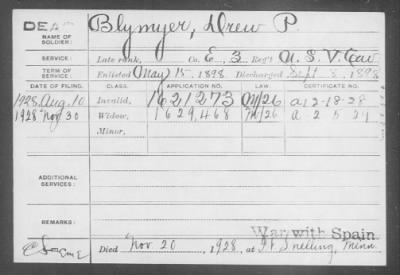 DEAD
NAME OF SOLDIER: Blymyer, Drew P.
SERVICE: Late rank, Co. E, 3 Reg't U. S. V. Cav
TERM OF SERVICE: Enlisted May 15, 1898 Discharged Sept 8, 1898
DATE OF FILING. CLASS. APPLICATION NO. LAW. CERTIFICATE NO.
1928 Aug. 10 Invalid, 1621273 a 12-18-28
1928 Nov 30 Widow, 1629468
Minor,
ADDITIONAL SERVICES:
REMARKS:
War with Spain
Died Nov 20, 1928, at Ft Snelling, Minn.